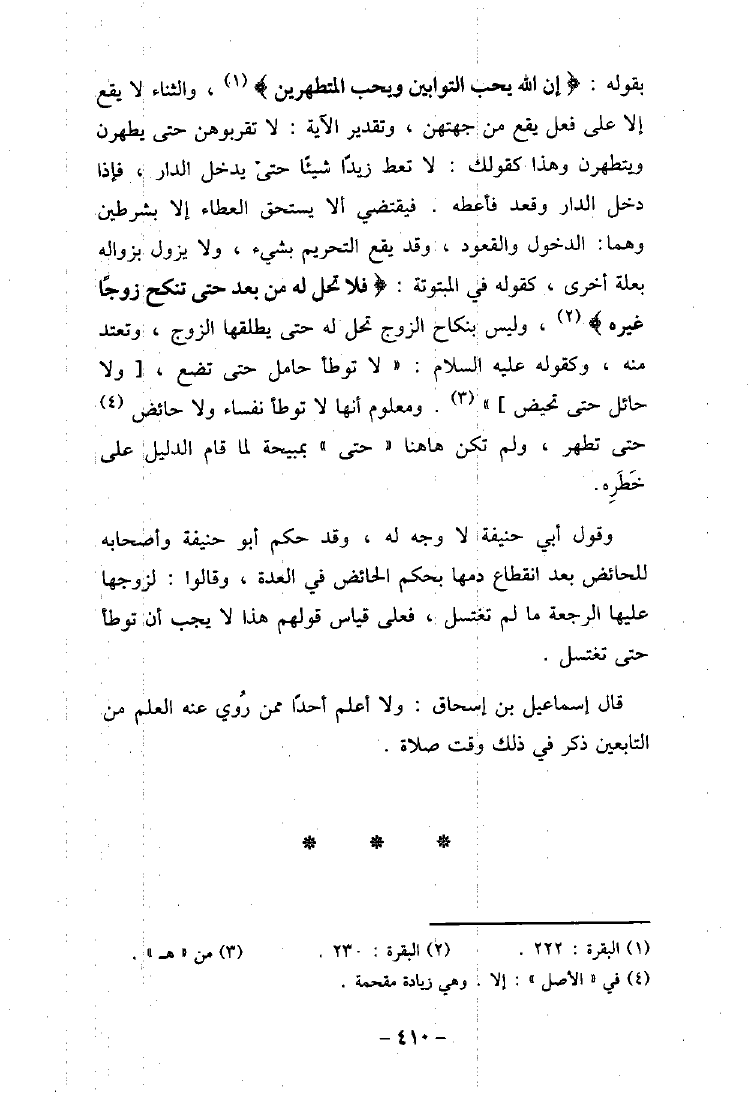 بقوله : ﴿ إن الله يحب التوابين ويحب المتطهرين ﴾ (١) ، والثناء لا يقع
إلا على فعل يقع من جهتهن ، وتقدير الآية : لا تقربوهن حتى يطهرن
ويتطهرن وهذا كقولك : لا تعط زيدًا شيئًا حتى يدخل الدار ، فإذا
دخل الدار وقعد فأعطه . فيقتضي ألا يستحق العطاء إلا بشرطين
وهما : الدخول والقعود ، وقد يقع التحريم بشيء ، ولا يزول بزواله
بعلة أخرى ، كقوله في المبتوتة : ﴿ فلا تحل له من بعد حتى تنكح زوجًا
غيره ﴾ (٢) ، وليس بنكاح الزوج تحل له حتى يطلقها الزوج ، وتعتد
منه ، وكقوله عليه السلام : « لا توطأ حامل حتى تضع ، [ ولا
حائل حتى تحيض ] » (٣) . ومعلوم أنها لا توطأ نفساء ولا حائض (٤)
حتى تطهر ، ولم تكن هاهنا « حتى » بمبيحة لما قام الدليل على
خَطَرِه .
وقول أبي حنيفة لا وجه له ، وقد حكم أبو حنيفة وأصحابه
للحائض بعد انقطاع دمها بحكم الحائض في العدة ، وقالوا : لزوجها
عليها الرجعة ما لم تغتسل ، فعلى قياس قولهم هذا لا يجب أن توطأ
حتى تغتسل .
قال إسماعيل بن إسحاق : ولا أعلم أحدًا ممن رُوي عنه العلم من
التابعين ذكر في ذلك وقت صلاة .
* * *
(١) البقرة : ٢٢٢ . (٢) البقرة : ٢٣٠ . (٣) من « هـ » .
(٤) في « الأصل » : إلا . وهي زيادة مقحمة .
- ٤١٠ -